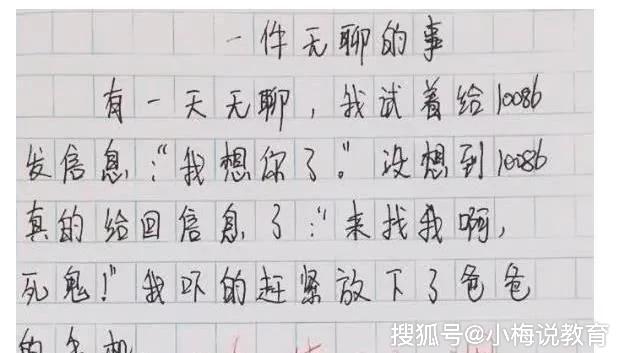 一件无聊的事
有一天无聊，我试着给10086
发信息："我想你了。"没想到10086
真的给回信息了："来找我啊，
死鬼！"我吓的赶紧放下了爸爸
的手机
搜狐号@小梅说教育